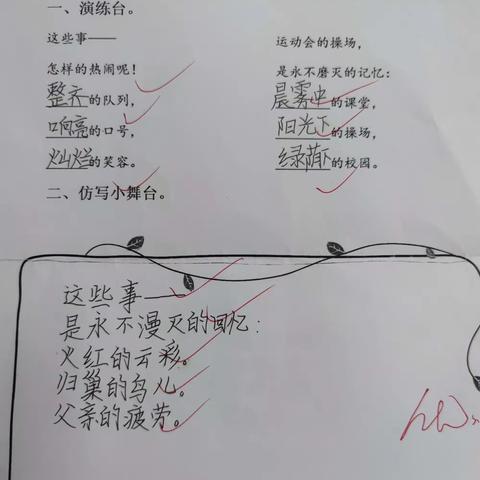 一、演练台。
这些事——
怎样的热闹呢！
整齐的队列，
响亮的口号，
灿烂的笑容。
运动会的操场，
是永不磨灭的记忆：
晨雾中的课堂，
阳光下的操场，
绿荫下的校园。
二、仿写小舞台。
这些事——
是永不漫灭的回忆：
火红的云彩。
归巢的鸟儿。
父亲的疲劳。